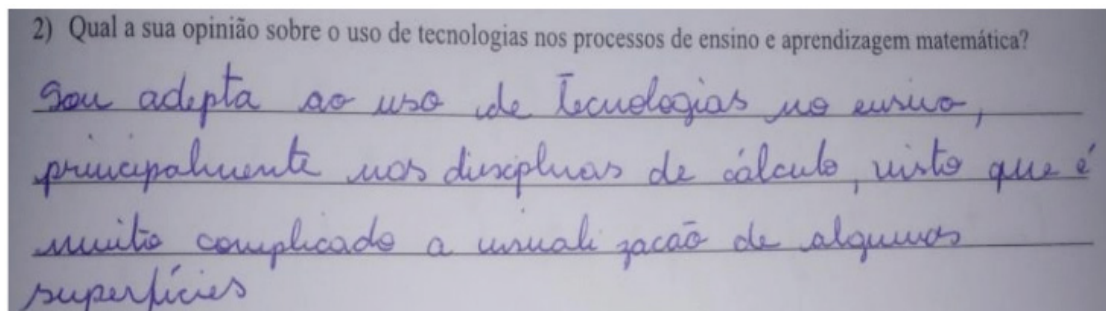 2) Qual a sua opinião sobre o uso de tecnologias nos processos de ensino e aprendizagem matemática?
Sou adepta ao uso de Tecnologias no ensino,
principalmente nas disciplinas de cálculo, visto que é
muito complicado a visualização de algumas
superfícies